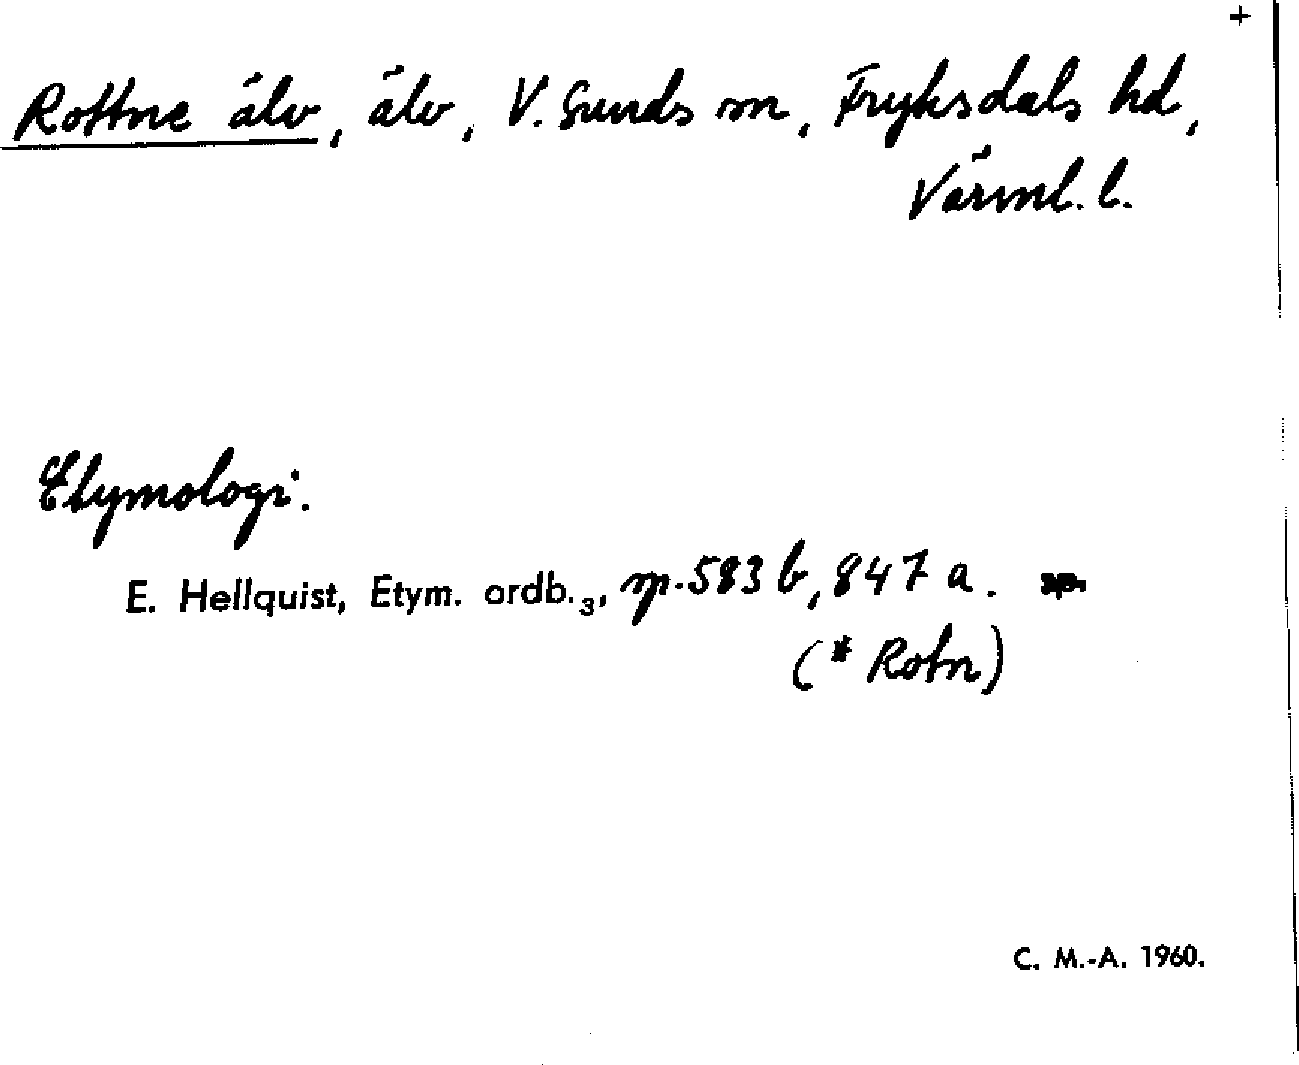 +
Rottne älv, älv, V. Sunds sn, Fryksdals hd,
Värml. l.
Etymologi.
E. Hellquist, Etym. ordb.₃, sp. 583 b, 847 a. sp.
(* Rotn)
C. M.-A. 1960.